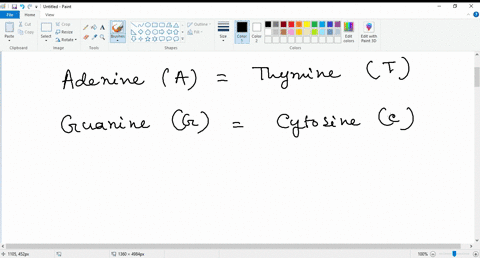 Untitled - Paint
File Home View
Paste Cut Copy Select Crop Resize Rotate Brushes Outline Fill Size Color 1 Color 2 Edit colors Edit with Paint 3D
Clipboard Image Tools Shapes Colors
Adenine (A) = Thymine (T)
Guanine (G) = Cytosine (C)
1100, 452px 1360 × 4984px 100%